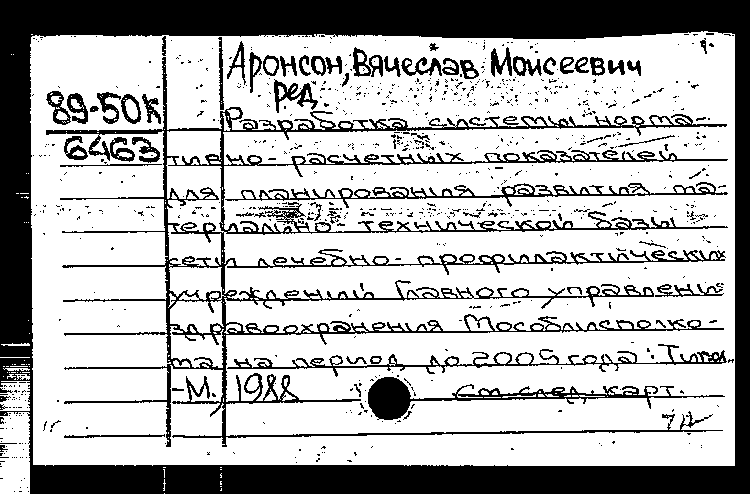 Аронсон, Вячеслав Моисеевич
ред.
89-50К
6463
Разработка системы норма-
тивно-расчетных показателей
для планирования развития ма-
териально-технической базы
сети лечебно-профилактических
учреждений Главного управления
здравоохранения Мособлисполко-
ма на период до 2005 года:
-М., 1988
См. след. карт.